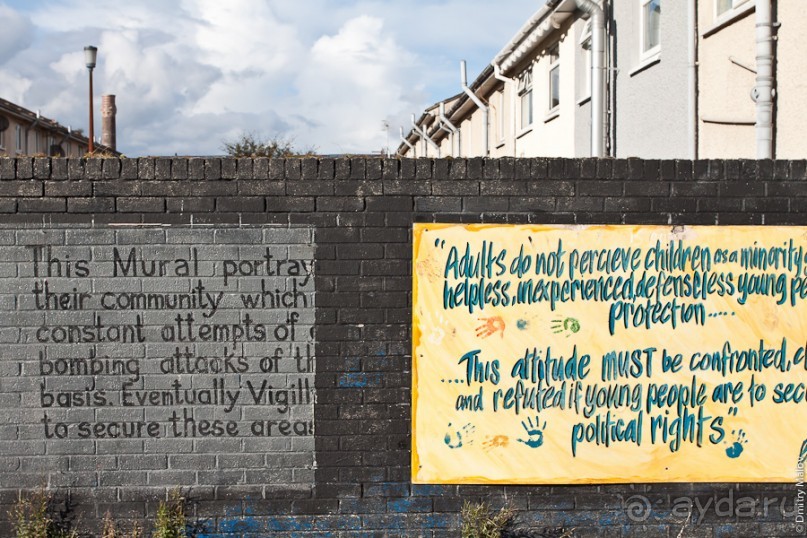 This Mural portray
their community which
constant attempts of
bombing attacks of th
basis. Eventually Vigil
to secure these areas
"Adults do not percieve children as a minority
helpless, inexperienced, defensless young pe
protection.....
....This attitude MUST be confronted, c
and refuted if young people are to sec
political rights"
© Dmitry Malov
ayda.ru